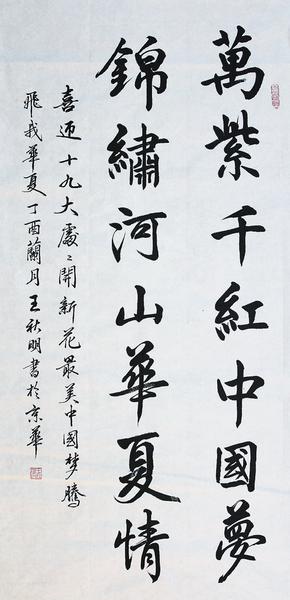 萬紫千紅中國夢
錦繡河山華夏情
喜迎十九大處〻開新花最美中國梦騰
飛我華夏丁酉蘭月王秋明書於京華